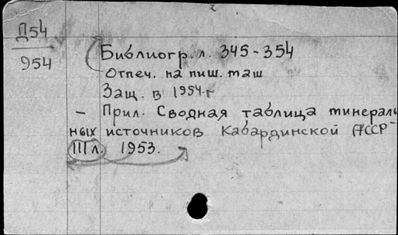 Д54
954
Библиогр. л. 345-354
Отпеч. на пиш. маш
Защ. в 1954 г
- Прил. Сводная таблица минераль
ных источников Кабардинской АССР -
III л. 1953.